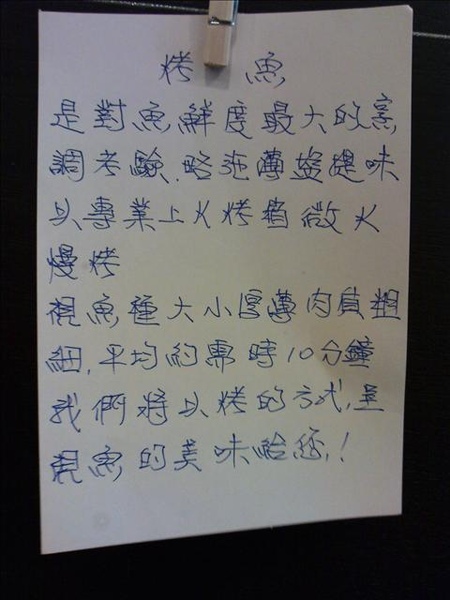 烤 魚
是對魚鮮度最大的烹
調考驗.略施薄鹽提味
以專業上火烤箱微火
慢烤
視魚種大小厚薄肉質粗
細.平均約需時10分鐘
我們將以烤的方式.呈
現魚的美味給您!